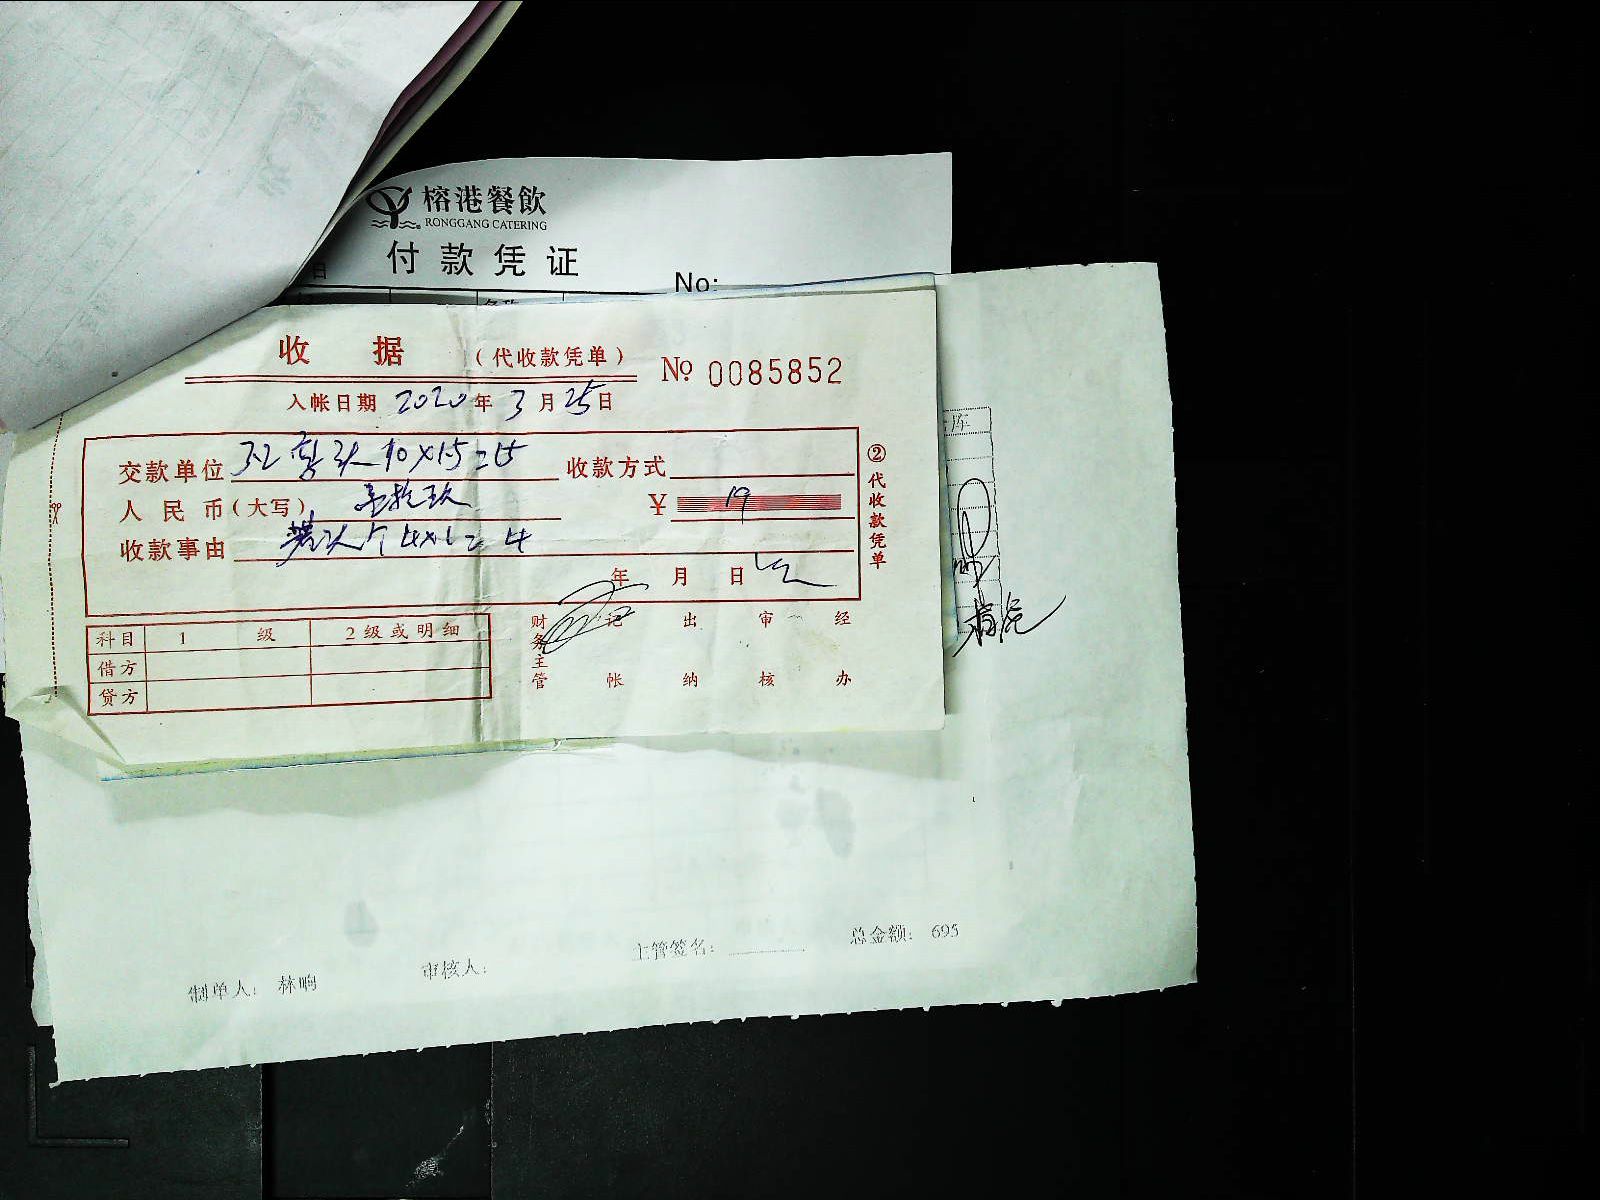 榕港餐飲
RONGGANG CATERING
付款凭证
日
No:
收 据 (代收款凭单) № 0085852
入帐日期 2020 年 3 月 25 日
交款单位 10×1.5=15 收款方式
人民币(大写) ¥ 19
收款事由 4×1=4
年 月 日
② 代收款凭单
科目 1 级 2级或明细
借方
贷方
财务主管 记帐 出纳 审核 经办
库
制单人: 林响 审核人: 主管签名: 总金额: 695